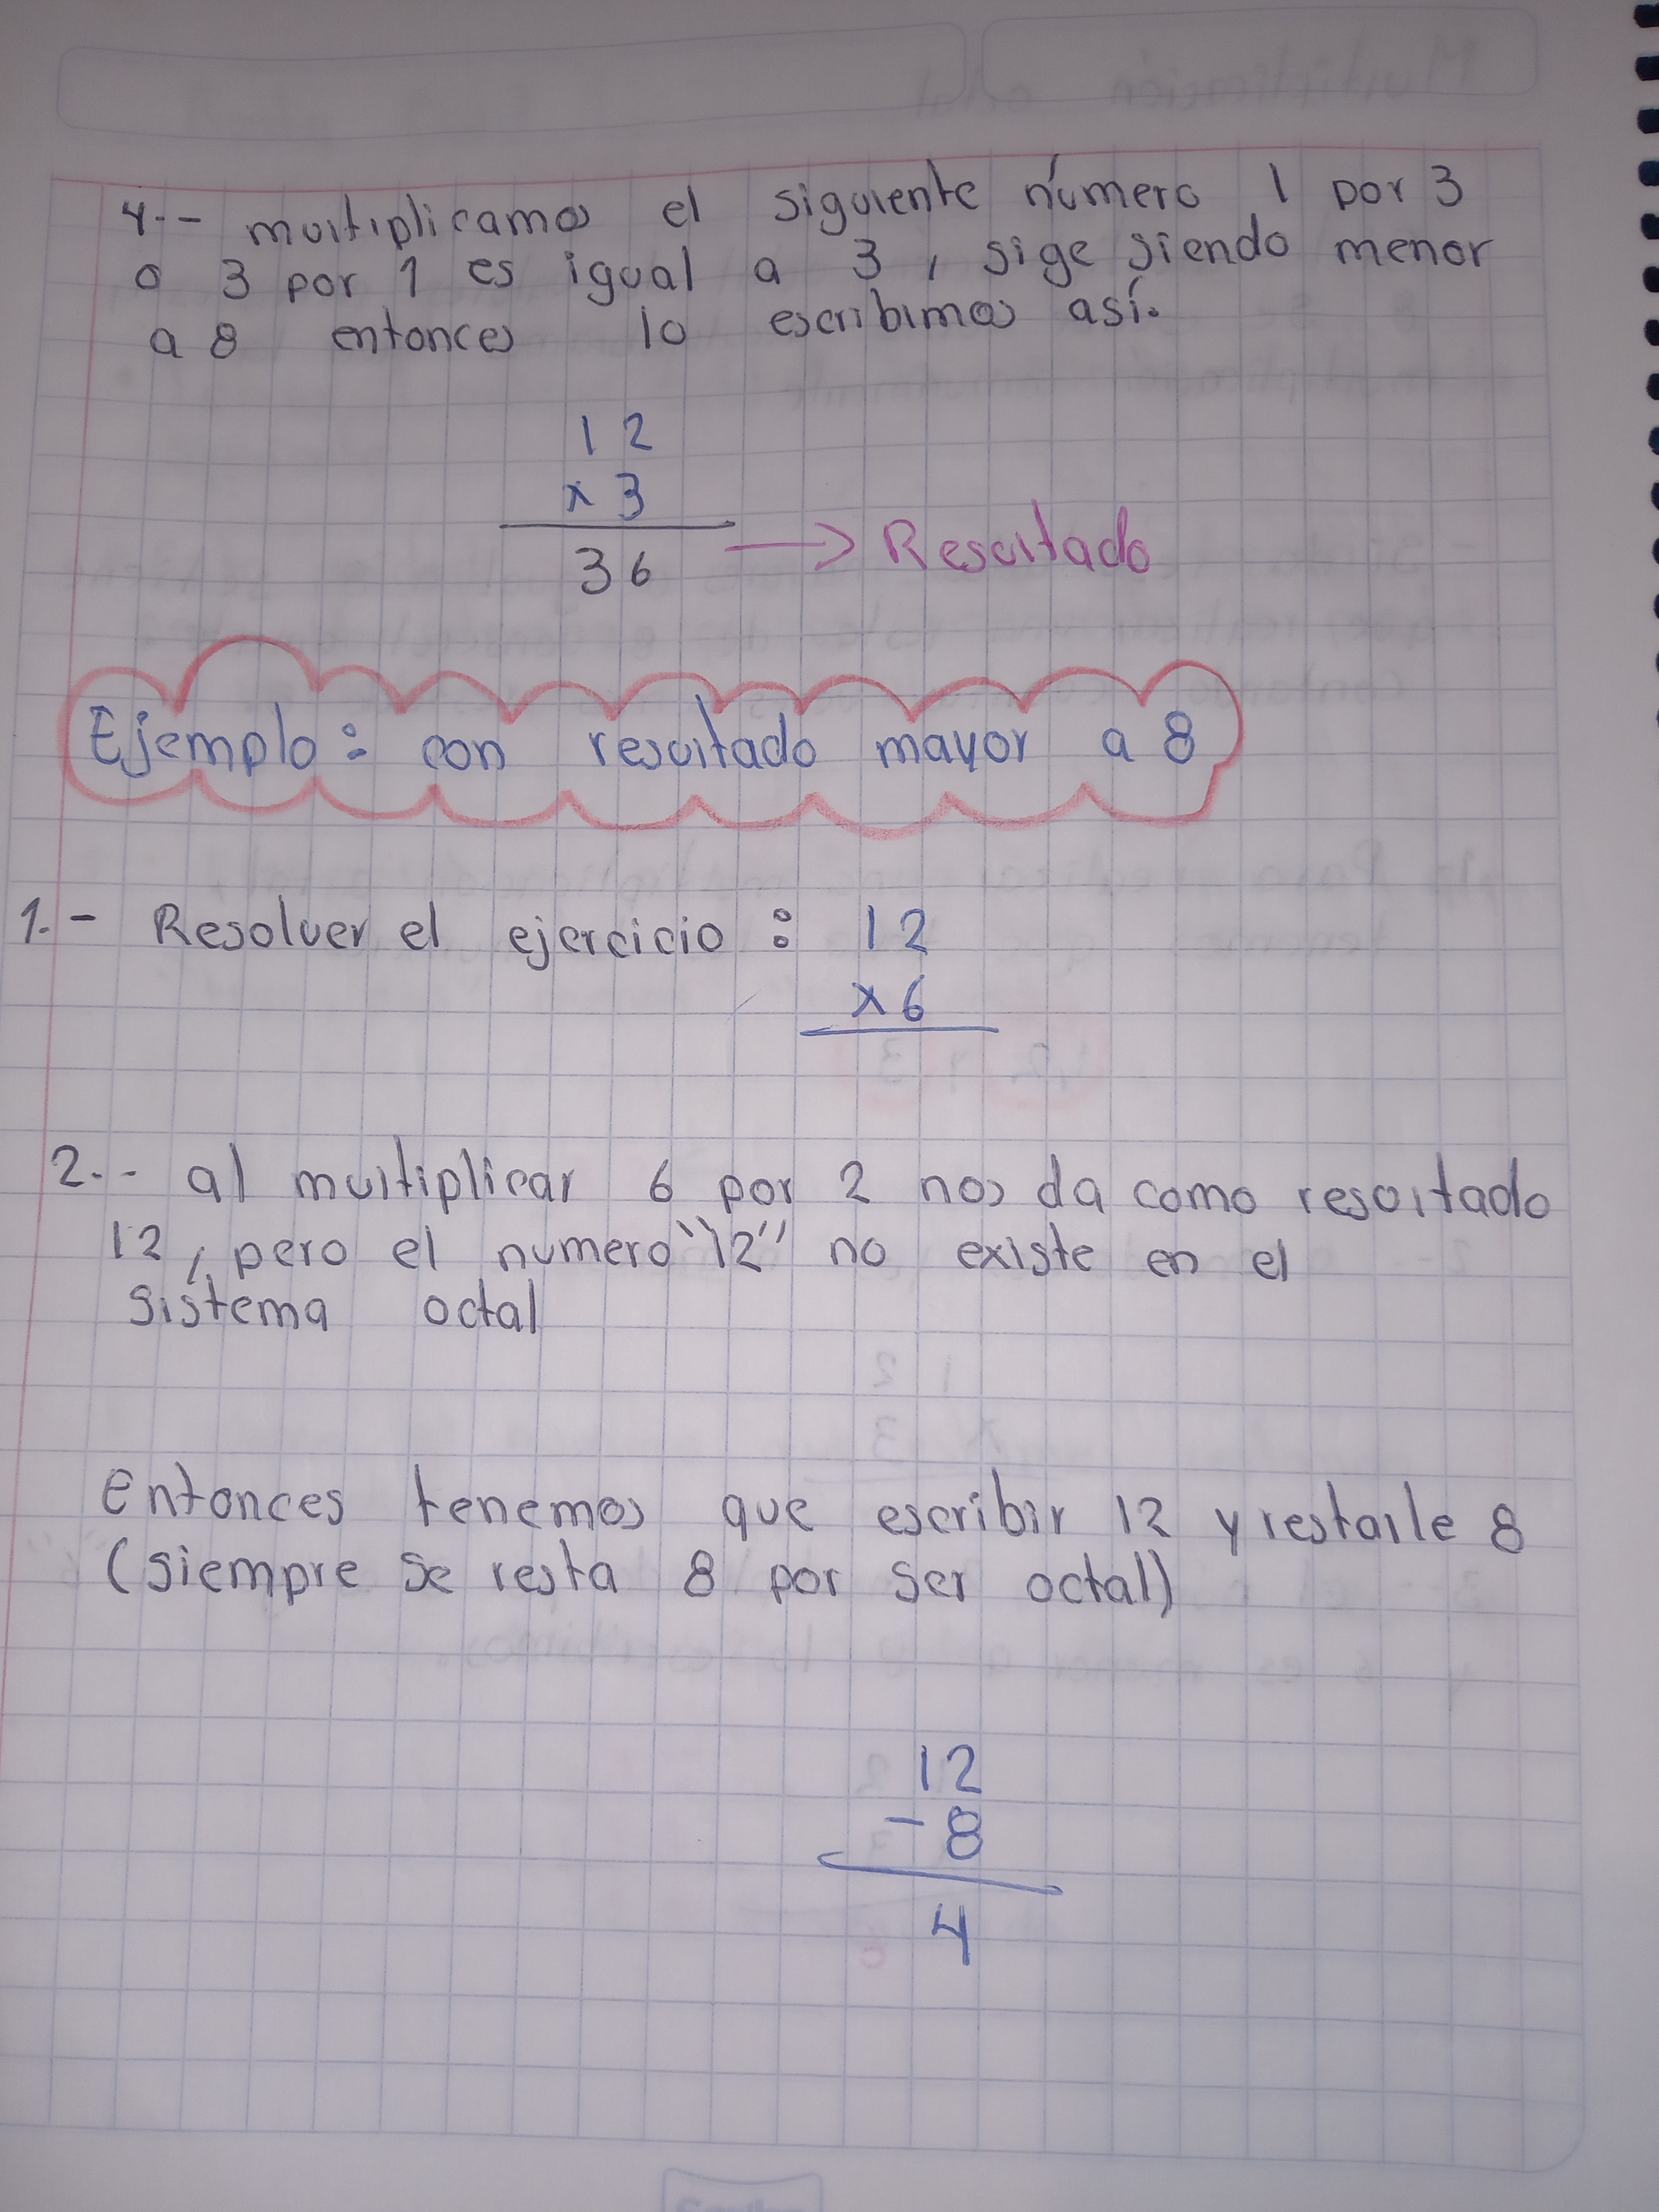 4.- multiplicamos el siguiente número 1 por 3
o 3 por 1 es igual a 3, sige siendo menor
a 8 entonces lo escribimos así.
12
x 3
36 → Resultado
Ejemplo: con resultado mayor a 8
1.- Resolver el ejercicio: 12
x6
2.- al multiplicar 6 por 2 nos da como resultado
12, pero el numero "12" no existe en el
sistema octal
entonces tenemos que escribir 12 y restarle 8
(siempre se resta 8 por ser octal)
12
- 8
4